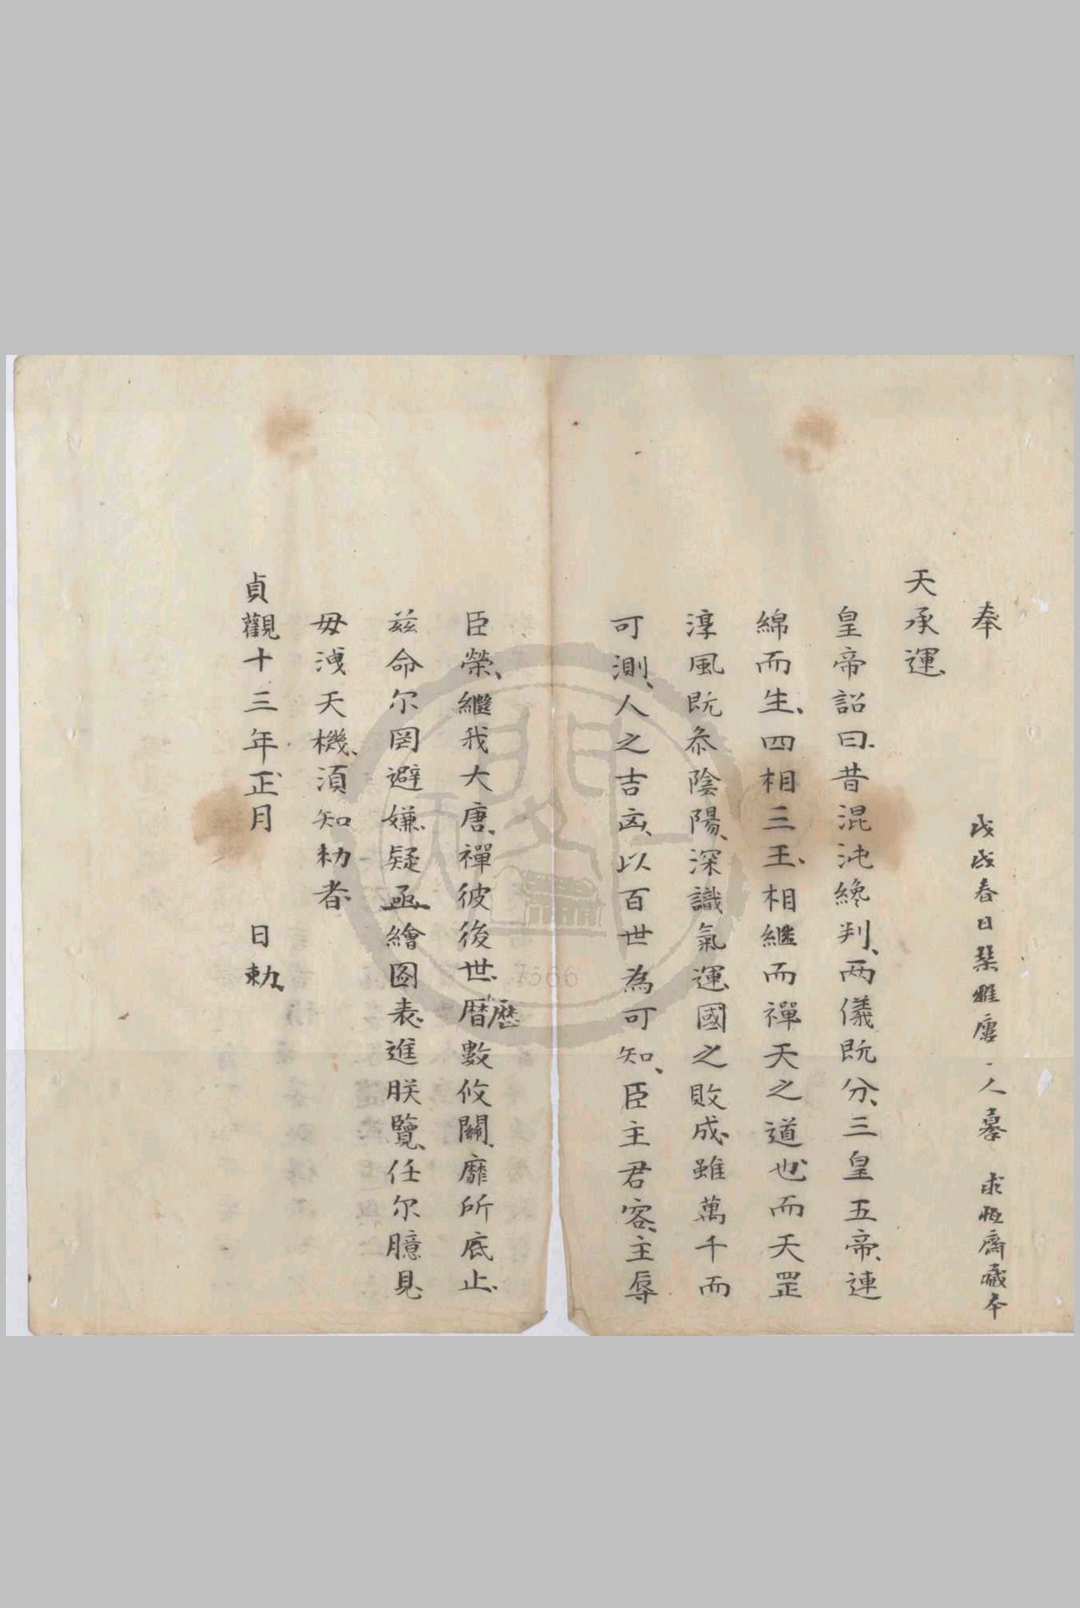 奉
戊戌春日 雅廔 人摹 求恆齋藏本
天承運
皇帝詔曰昔混沌纔判、两儀既分、三皇五帝、連
綿而生、四相三王、相繼而禪天之道也而天罡
淳風既叅陰陽、深識氣運國之敗成、雖萬千而
可測、人之吉凶、以百世為可知、臣主君容、主辱
臣榮、繼我大唐、禪彼後世、曆數攸關、靡所底止、
歷
兹命尔罔避嫌疑、亟繪圖表、進朕覽、任尔臆見
毋洩天機、須知勑者
貞觀十三年正月 日勅
7566